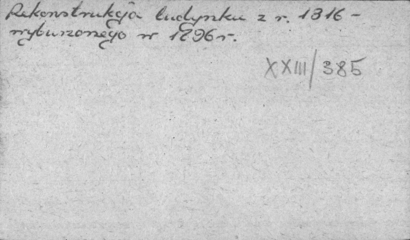 Rekonstrukcja budynku z r. 1316 -
wyburzonego w 1896 r.
XXIII/385